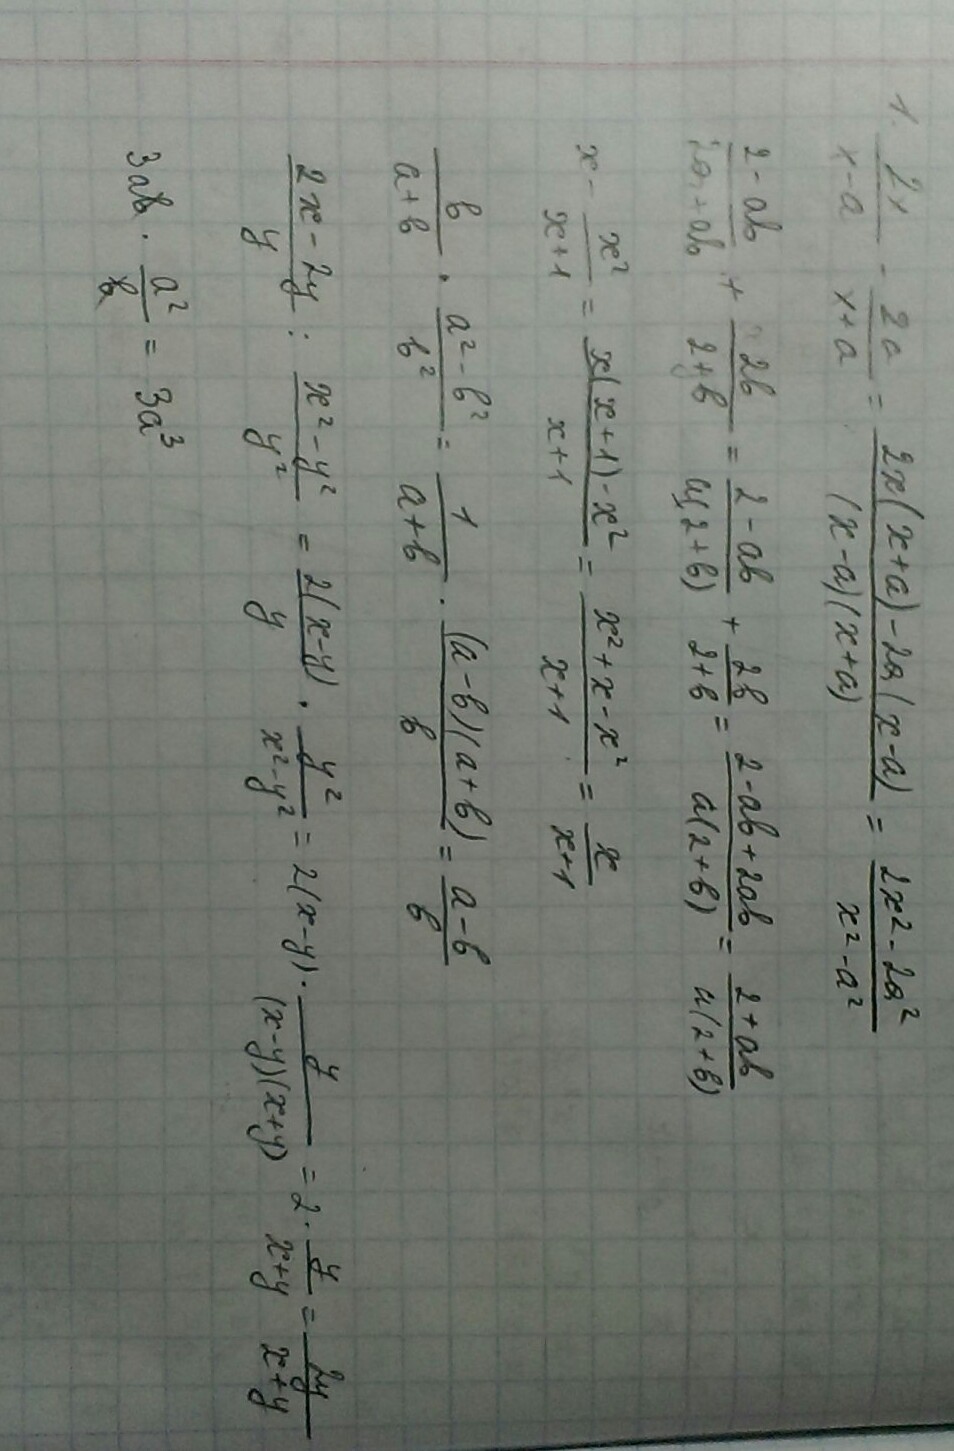 1. 2x/(x-a) - 2a/(x+a) = (2x(x+a)-2a(x-a))/((x-a)(x+a)) = (2x²-2a²)/(x²-a²)
(2-ab)/(2a+ab) + 2b/(2+b) = (2-ab)/(a(2+b)) + 2b/(2+b) = (2-ab+2ab)/(a(2+b)) = (2+ab)/(a(2+b))
x - x²/(x+1) = (x(x+1)-x²)/(x+1) = (x²+x-x²)/(x+1) = x/(x+1)
в/(a+в) · (a²-в²)/в² = 1/(a+в) · ((a-в)(a+в))/в = (a-в)/в
(2x-2y)/y : (x²-y²)/y² = 2(x-y)/y · y²/(x²-y²) = 2(x-y) · y/((x-y)(x+y)) = 2 · y/(x+y) = 2y/(x+y)
3aв · a²/в = 3a³